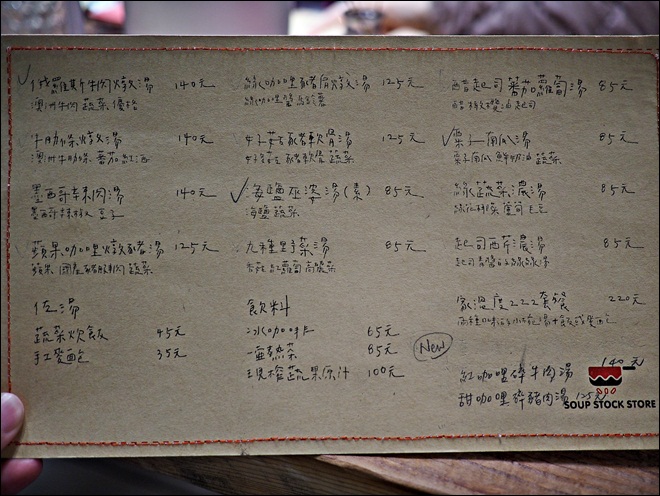 ✓俄羅斯牛肉燉湯 140元
澳洲牛肉 蔬菜 優格
牛肋條燉湯 140元
澳洲牛肋條 蕃茄 紅酒
墨西哥辣肉湯 140元
墨西哥辣椒 豆子
蘋果咖哩燉豬湯 125元
蘋果 國產豬腿肉 蔬菜
佐湯
蔬菜炊飯 45元
手工麵包 35元
綠咖哩豬肩燉湯 125元
綠咖哩醬
豬軟骨湯 125元
豬軟骨 蔬菜
✓海鹽巫婆湯(素) 85元
海鹽 蔬菜
九種野菜湯 85元
紅蘿蔔 高麗菜
飲料
冰咖啡 65元
一壺熱茶 85元
現榨蔬果原汁 100元
醋起司蕃茄蘿蔔湯 85元
起司
✓栗子南瓜湯 85元
栗子南瓜 鮮奶油 蔬菜
綠蔬菜濃湯 85元
起司西芹濃湯 85元
起司
家溫度222套餐 220元
New
紅咖哩碎牛肉湯 140元
甜咖哩碎豬肉湯 125元
SOUP STOCK STORE